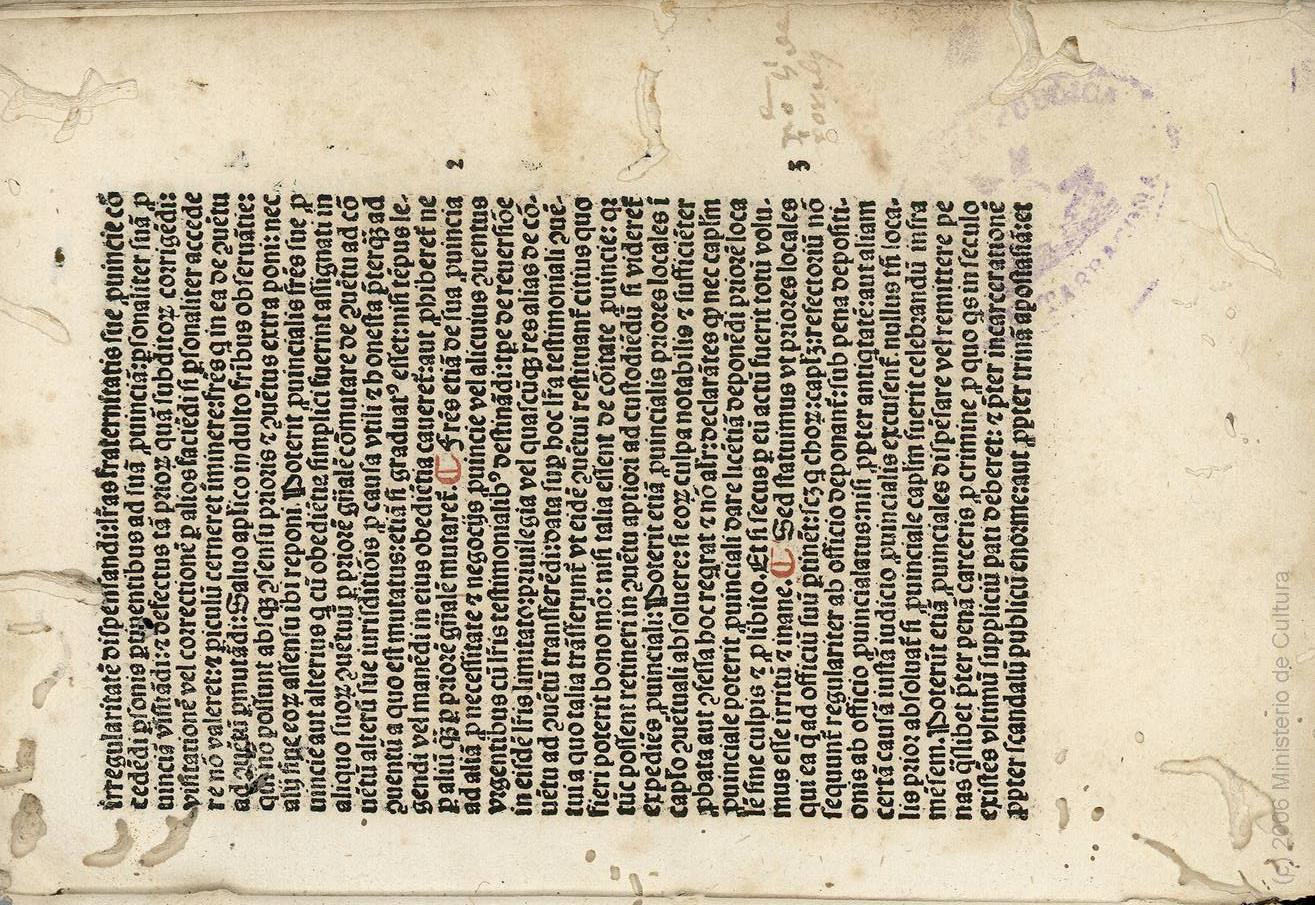 irregularitatē dispensandi: l̄ras fraternitatis sue ꝓuincie cō
cedēdi ꝑsonis ꝓuenientibus ad istā ꝓuinciā: ꝑsonaliter suā ꝓ
uinciā visitādi: ⁊ defectus tā prioꝝ quā subditoꝝ corrigēdi:
visitationē vel correctionē ꝑ alios faciēdi si ꝑsonaliter accede
re nō valeret: ⁊ ꝑiculū cerneret īminere: fr̄es qui in ea de ꝯuētu
ad ꝑmutādi: Saluo aplico indulto fribus obseruātie:
qui nō possunt absqꝫ ꝯsensu prioris ⁊ ꝯuētus extra poni: nec
alij sine eoꝝ assensu ibi reponi. Poterit ꝓuincialis fr̄es sue ꝓ
uincie aut alterius q̄ cū obediētie simplici fuerint assignati in
aliquo suoꝝ ꝯuētuū ꝑ priorē gn̄alē cōmutare de ꝯuētu ad cō
uētū alterū sue iurisditiōis ꝑ causa vtili ⁊ honesta p̄terqꝫ ad
ꝯuentū a quo est mutatus: etiā si graduatꝰ esset: nisi tēpus le-
gendi vel manēdi in eius obediētia caueret̄: aut ꝓhiberet̄ ne
ꝑ aliū qꝫ ꝑ priorē gn̄alē mutaret̄. ¶ Fr̄es etiā de sua ꝓuincia 2
ad aliā ꝑ necessitate ⁊ negocijs ꝓuincie vel alicuius ꝯuentus
vrgentibus cū l̄ris testimonialibꝰ destinādi: tp̄e de reuersiōe
in eisdē l̄ris limitato: priuilegia vel quascūqꝫ res alias de cō-
uētu ad ꝯuētū transferēdi: data suꝑ hoc l̄ra testimoniali ꝯuē-
tui a quo talia trāsferunt̄ vt eidē ꝯuētui restituant̄ citius quo
fieri poterit bono mō: nisi talia essent de cōitate ꝓuincie: qꝛ
tūc possent retineri in ꝯuētu aptiori ad custodiēdū si videret̄
expediēs ꝓuinciali: Poterit etiā ꝓuincialis priores locales ī
caplo ꝯuētuali absoluere: si eoꝝ culpa notabilis ⁊ sufficiēter
ꝓbata aut ꝯfessa hoc reqrat ⁊ nō alr̄: declarātes ꝙ nec caplm̄
ꝓuinciale poterit ꝓuinciali dare licētiā deponēdi priorē loca
lē sine culpis ⁊ ꝑ libito. Et si secus ꝑ eū actū fuerit totū volu-
mus esse irritū ⁊ inane. ¶ Sed statuimus vt priores locales 3
qui ea q̄ ad officiū suū ꝑtinēt: scꝫ chorū: caplꝫ: ⁊ refectoriū nō
sequunt̄ regulariter ab officio deponant̄: sub pena depositi-
onis ab officio ꝓuincialatus: nisi ꝓpter antiqtatē: aut aliam
certā causā iustā iudicio ꝓuincialis excusent̄. nullus tn̄ loca-
lis prior absoluat̄ si ꝓuinciale caplm̄ fuerit celebrandū infra
mēsem. Poterūt etiā ꝓuinciales dispēsare vel remittere pe
nas q̄slibet p̄ter penā carceris ꝑ crimine ꝑ quo qs in seculo
existēs vltimū suppliciū pati deberet: ⁊ p̄ter incarcerationē
ꝓpter scandalū publicū enorme: aut ꝓpter trinā apostasiā: et
TARRAGONA
(c) 2006 Ministerio de Cultura